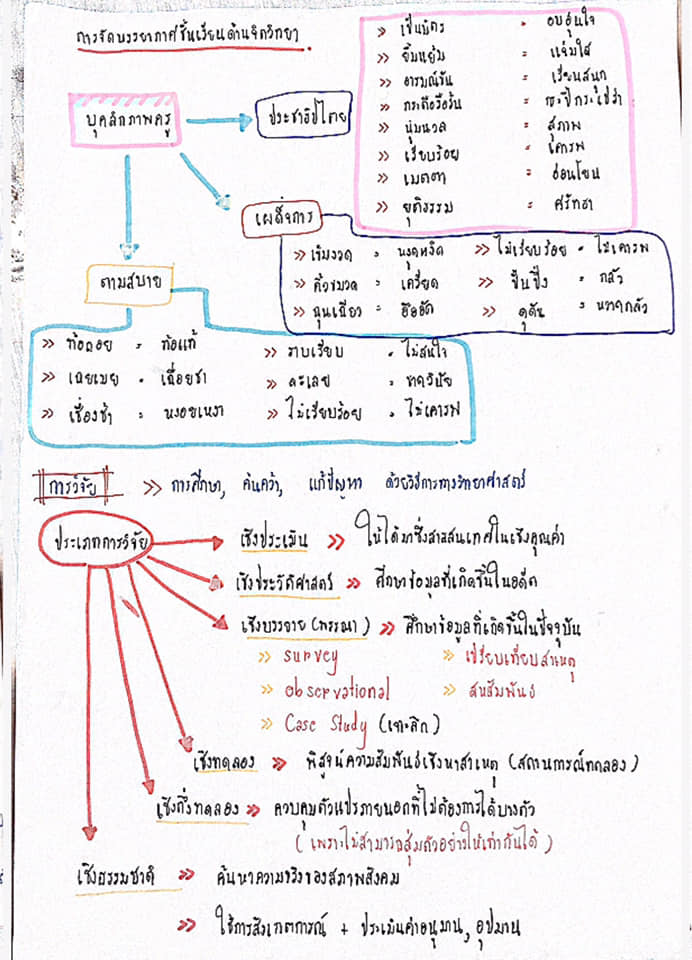 การจัดบรรยากาศชั้นเรียนด้านจิตวิทยา
บุคลิกภาพครู
ประชาธิปไตย
» เป็นมิตร = อบอุ่นใจ
» ยิ้มแย้ม = แจ่มใส
» อารมณ์ขัน = เรียนสนุก
» กระตือรือร้น = กระปรี้กระเปร่า
» นุ่มนวล = สุภาพ
» เรียบร้อย = เคารพ
» เมตตา = อ่อนโยน
» ยุติธรรม = ศรัทธา
เผด็จการ
» เข้มงวด = หงุดหงิด » ไม่เรียบร้อย = ไม่เคารพ
» คิ้วขมวด = เครียด » ปั้นปึ่ง = กลัว
» ฉุนเฉียว = อึดอัด » ดุดัน = หวาดกลัว
ตามสบาย
» ท้อถอย = ท้อแท้ » ราบเรียบ = ไม่สนใจ
» เฉยเมย = เฉื่อยชา » ละเลย = ขาดวินัย
» เชื่องช้า = หงอยเหงา » ไม่เรียบร้อย = ไม่เคารพ
การวิจัย » การศึกษา, ค้นคว้า, แก้ปัญหา ด้วยวิธีการทางวิทยาศาสตร์
ประเภทการวิจัย
เชิงประเมิน » ให้ได้มาซึ่งสารสนเทศในเชิงคุณค่า
เชิงประวัติศาสตร์ » ศึกษาข้อมูลที่เกิดขึ้นในอดีต
เชิงบรรยาย (พรรณา) » ศึกษาข้อมูลที่เกิดขึ้นในปัจจุบัน
» survey » เปรียบเทียบสาเหตุ
» observational » สหสัมพันธ์
» Case Study (เจาะลึก)
เชิงทดลอง » พิสูจน์ความสัมพันธ์เชิงหาสาเหตุ (สถานการณ์ทดลอง)
เชิงกึ่งทดลอง » ควบคุมตัวแปรภายนอกที่ไม่ต้องการได้บางตัว
(เพราะไม่สามารถสุ่มตัวอย่างให้เท่ากันได้)
เชิงธรรมชาติ » ค้นหาความจริงของสภาพสังคม
» ใช้การสังเกตการณ์ + ประเมินค่าอนุมาน, อุปมาน